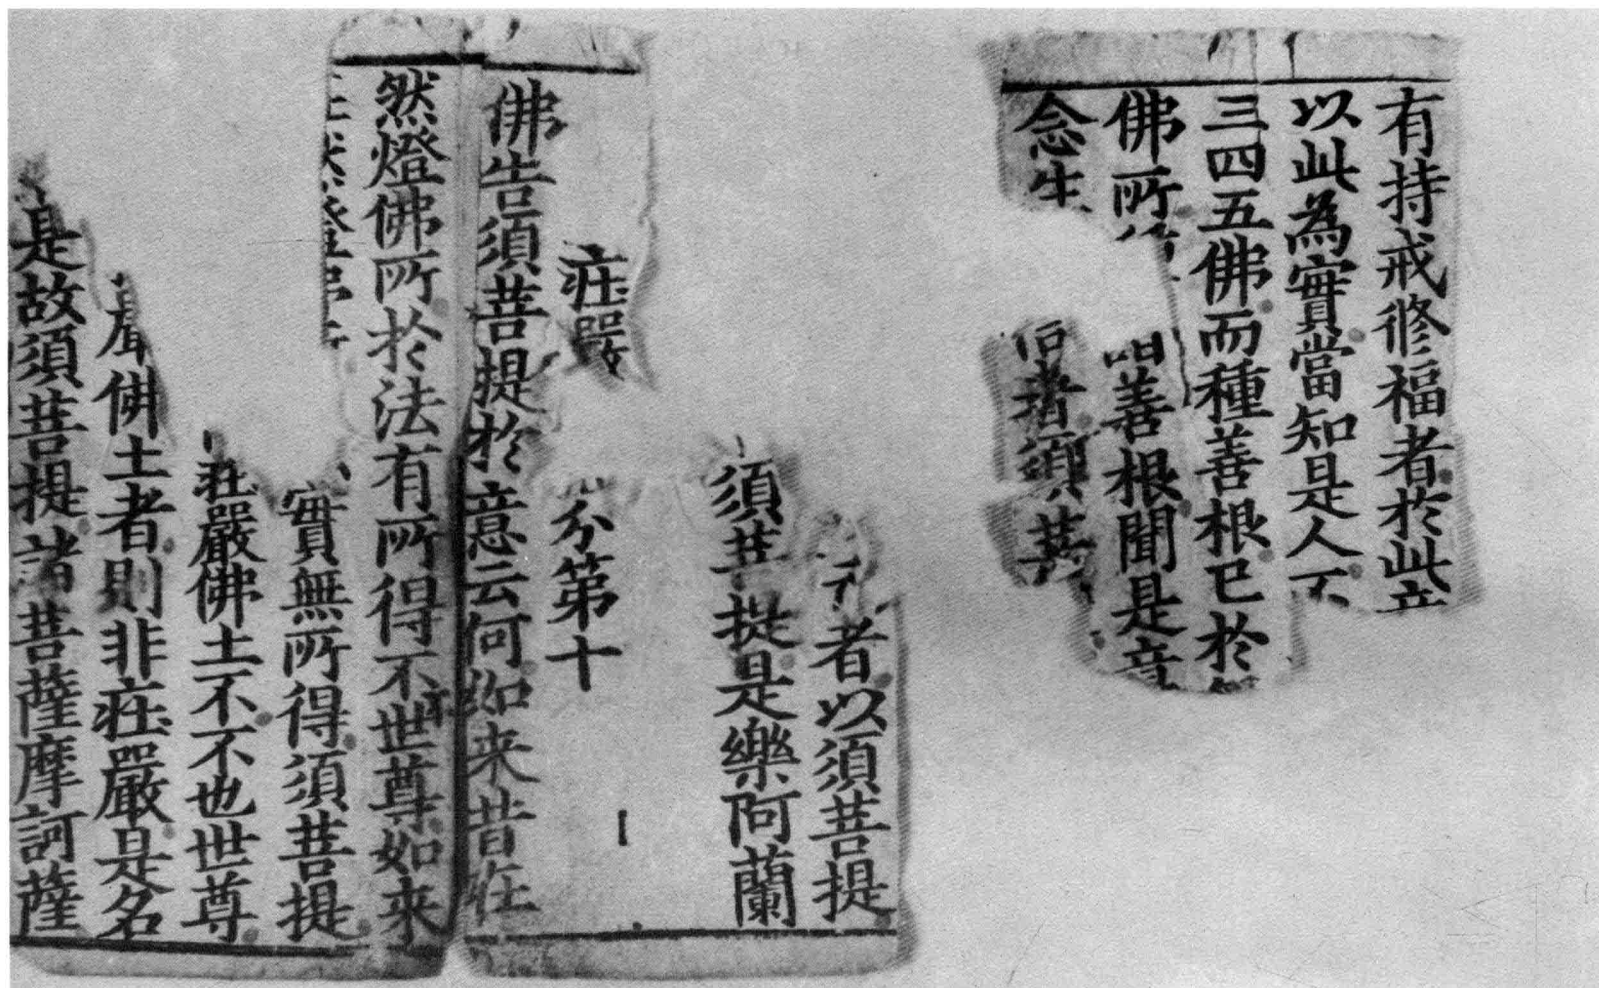 有持戒修福者於此
以此為實當知是人不
三四五佛而種善根已於
佛所 善根聞是章
念生 信者須菩
者以須菩提
須菩提是樂阿蘭
莊嚴 分第十
佛告須菩提於意云何如来昔在
然燈佛所於法有所得不世尊如来
在然燈佛所 實無所得須菩提
莊嚴佛土不不也世尊
嚴佛土者則非莊嚴是名
是故須菩提諸菩薩摩訶薩